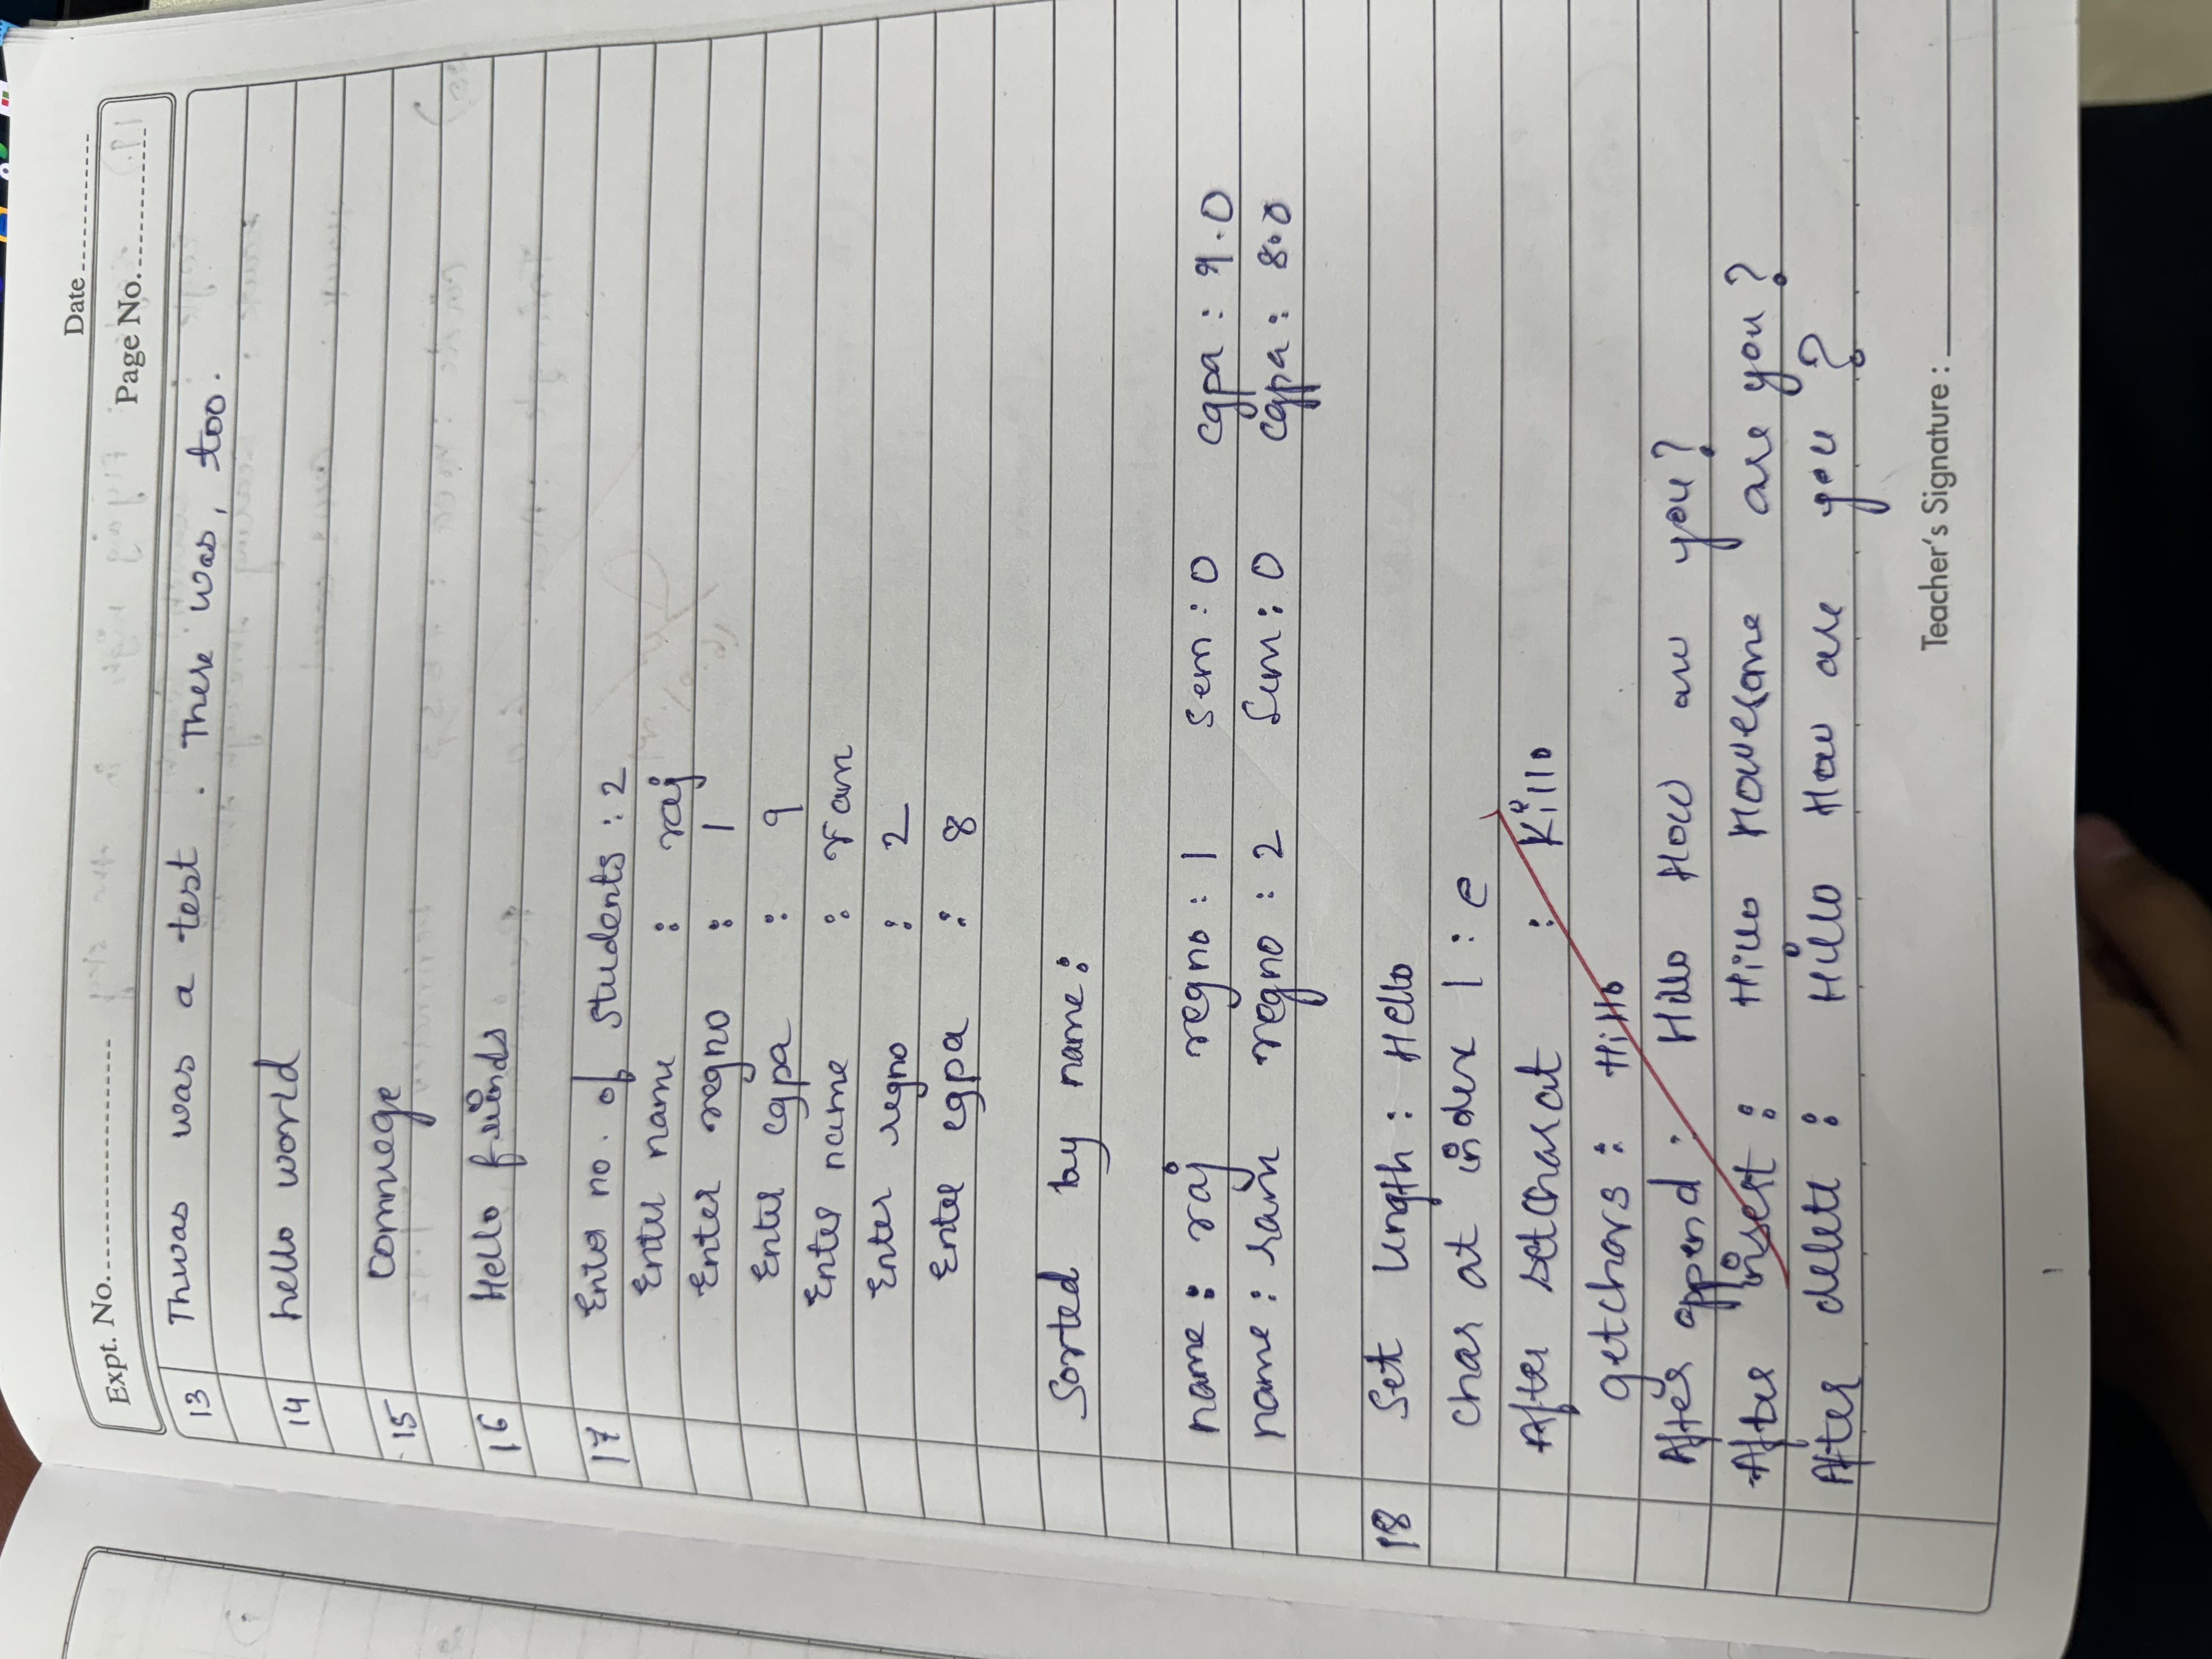 Date
Expt. No.
Page No.
13 Thwas was a test . There was, too.
14 hello world
15
16 Hello friends
17 Enter no. of students : 2
Enter name : raj
Enter regno : 1
Enter cgpa : 9
Enter name : ram
Enter regno : 2
Enter cgpa : 8
Sorted by name :
name : raj regno : 1 sem : 0 cgpa : 9.0
name : ram regno : 2 Sem : 0 cgpa : 8.0
18 Set length : Hello
char at index 1 : e
After setcharat : Killo
getchars : Hillo
After append : Hillo How are you?
After insert : Hillo Howesome are you?
After delete : Hillo How are you ?
Teacher's Signature :